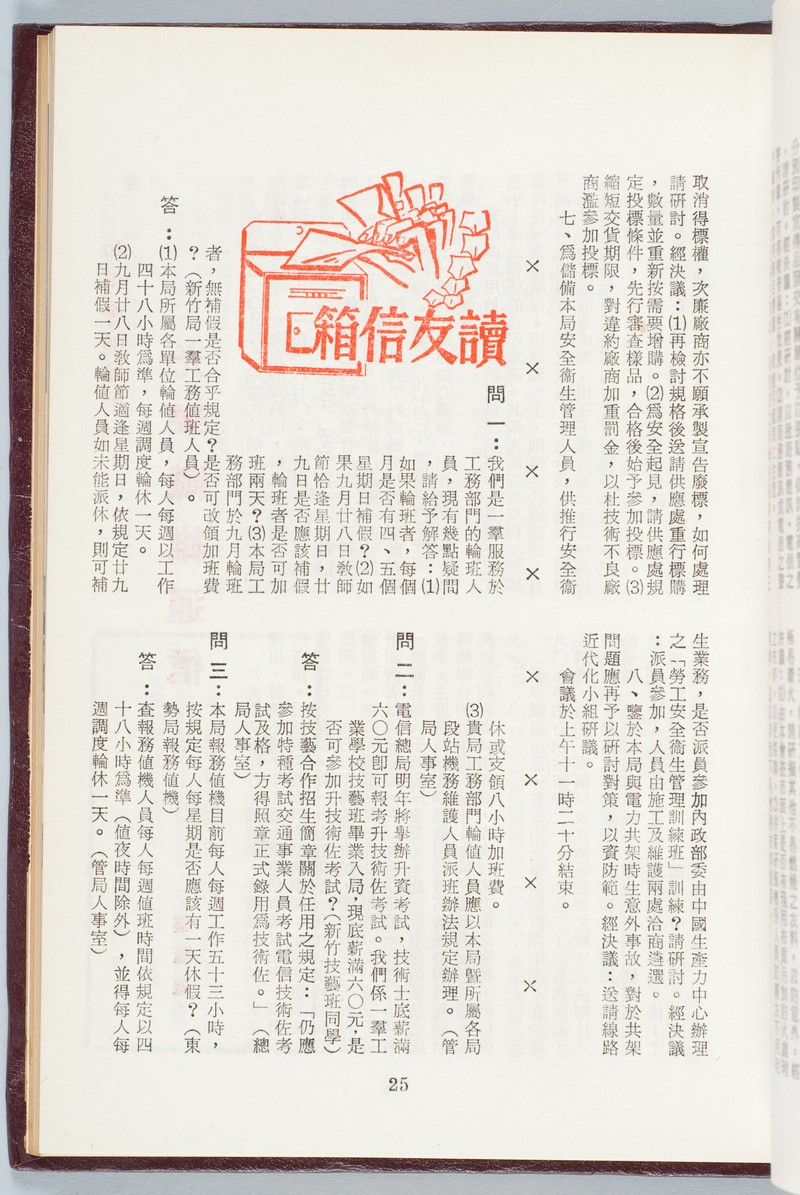 取消得標權，次廉廠商亦不願承製宣告廢標，如何處理
請研討。經決議：⑴再檢討規格後送請供應處重行標購
，數量並重新按需要增購。⑵為安全起見，請供應處規
定投標條件，先行審查樣品，合格後始予參加投標。⑶
縮短交貨期限，對違約廠商加重罰金，以杜技術不良廠
商濫參加投標。
七、為儲備本局安全衞生管理人員，供推行安全衞
生業務，是否派員參加內政部委由中國生產力中心辦理
之「勞工安全衞生管理訓練班」訓練？請研討。經決議
：派員參加，人員由施工及維護兩處洽商遴選。
八、鑒於本局與電力共架時生意外事故，對於共架
問題應再予以研討對策，以資防範。經決議：送請線路
近代化小組研議。
會議於上午十一時二十分結束。
× × × × × × × ×
讀友信箱
問一：我們是一羣服務於
工務部門的輪班人
員，現有幾點疑問
，請給予解答：⑴
如果輪班者，每個
月是否有四、五個
星期日補假？⑵如
果九月廿八日教師
節恰逢星期日，廿
九日是否應該補假
，輪班者是否可加
班兩天？⑶本局工
務部門於九月輪班
者，無補假是否合乎規定？是否可改領加班費
？（新竹局一羣工務值班人員）。
答：⑴本局所屬各單位輪值人員，每人每週以工作
四十八小時為準，每週調度輪休一天。
⑵九月廿八日教師節適逢星期日，依規定廿九
日補假一天。輪值人員如未能派休，則可補
休或支領八小時加班費。
⑶貴局工務部門輪值人員應以本局暨所屬各局
段站機務維護人員派班辦法規定辦理。（管
局人事室）
問二：電信總局明年將舉辦升資考試，技術士底薪滿
六〇元即可報考升技術佐考試。我們係一羣工
業學校技藝班畢業入局，現底薪滿六〇元，是
否可參加升技術佐考試？（新竹技藝班同學）
答：按技藝合作招生簡章關於任用之規定：「仍應
參加特種考試交通事業人員考試電信技術佐考
試及格，方得照章正式錄用為技術佐。」（總
局人事室）
問三：本局報務值機目前每人每週工作五十三小時，
按規定每人每星期是否應該有一天休假？（東
勢局報務值機）
答：查報務值機人員每人每週值班時間依規定以四
十八小時為準（值夜時間除外），並得每人每
週調度輪休一天。（管局人事室）
25